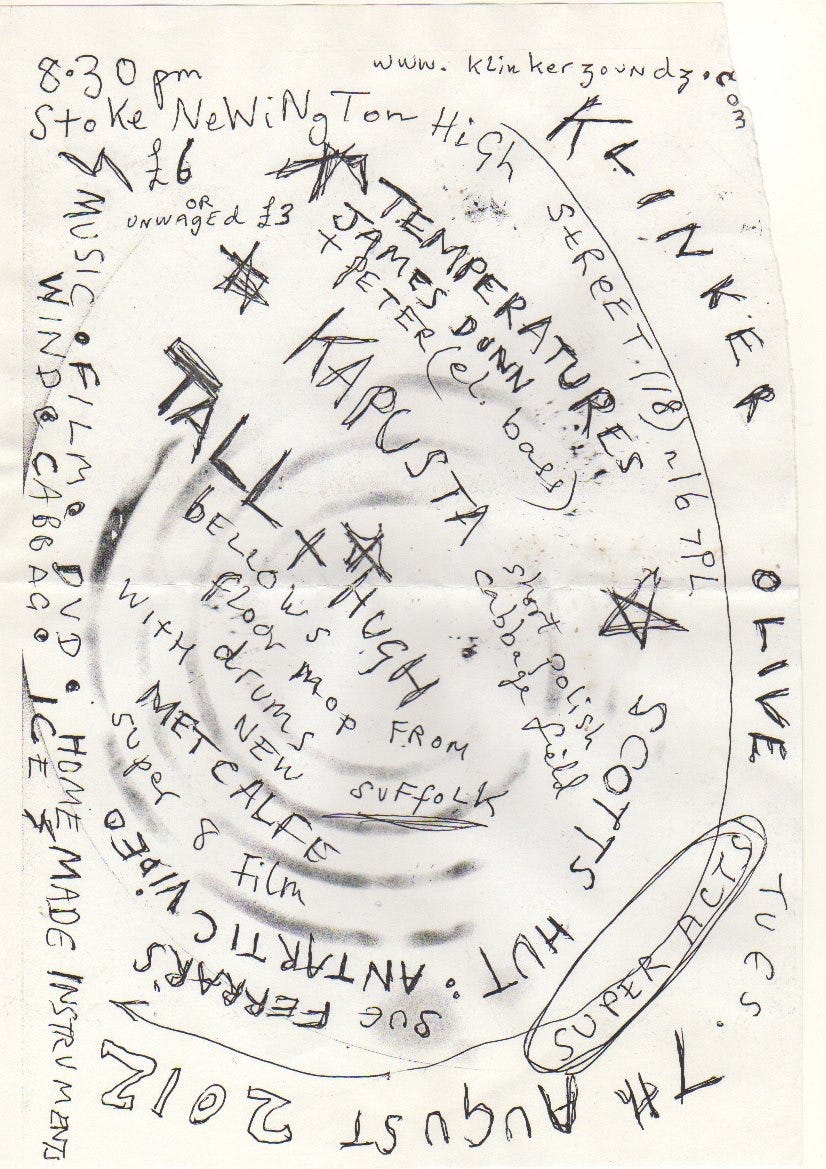 8.30 pm
www.klinkerzoundz.com
Stoke NeWiNgTon HiGh STREET (18) n16 7PL
£6
OR
UNWAGED £3
KLINKER
OLIVE
TUES.
7th AUGUST 2012
SUPER ACTS
TEMPERATURES
JAMES DUNN
+ PETER (el. bass)
KAPUSTA
short polish
cabbage field
TALL x HUGH
BELLOWS
floor mop FROM
SUFFOLK
WITH drums
NEW
METCALFE
super 8 film
SCOTTS HUT: ANTARTIC VIDEO
SUE FERRAR'S
MUSIC • FILM • DVD • HOMEMADE INSTRUMENTS
WIND • CABBAG • ICE